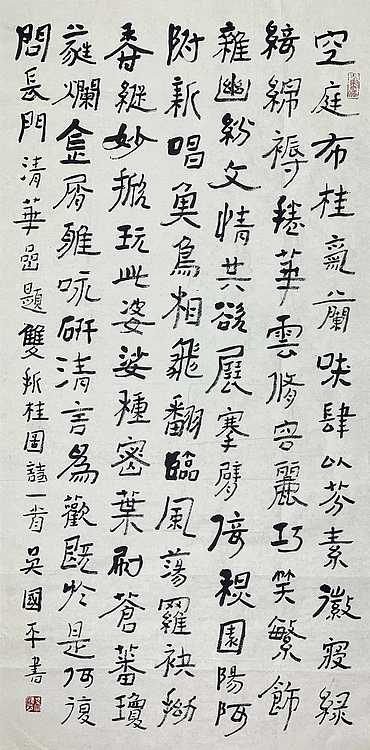 空庭布桂八闌味肆以芬素徽寝緑
綺綿褥華雲脩容麗巧笑繁飾
雜幽紛文情共欲展搴臂倚園陽阿
附新唱魚鳥相飛翻臨風蕩羅袂拗
香縱妙玩此婆娑種密葉刷蒼蕃瓊
蕤爛金屑雖咏研清言為歡既於是何復
問長門 清華嵒題雙折桂圖詩一首 吳國平書